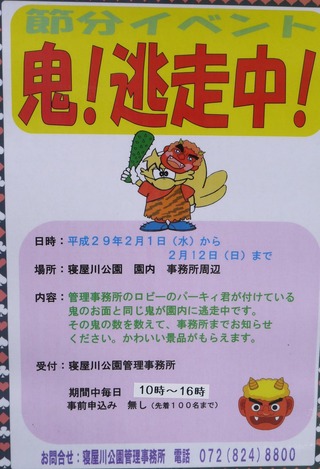 節分イベント
鬼!逃走中!
日時：平成29年2月1日（水）から
2月12日（日）まで
場所：寝屋川公園 園内 事務所周辺
内容：管理事務所のロビーのパーキィ君が付けている
鬼のお面と同じ鬼が園内に逃走中です。
その鬼の数を数えて、事務所までお知らせ
ください。かわいい景品がもらえます。
受付：寝屋川公園管理事務所
期間中毎日 10時～16時
事前申込み 無し（先着100名まで）
お問合せ：寝屋川公園管理事務所 電話 072(824)8800